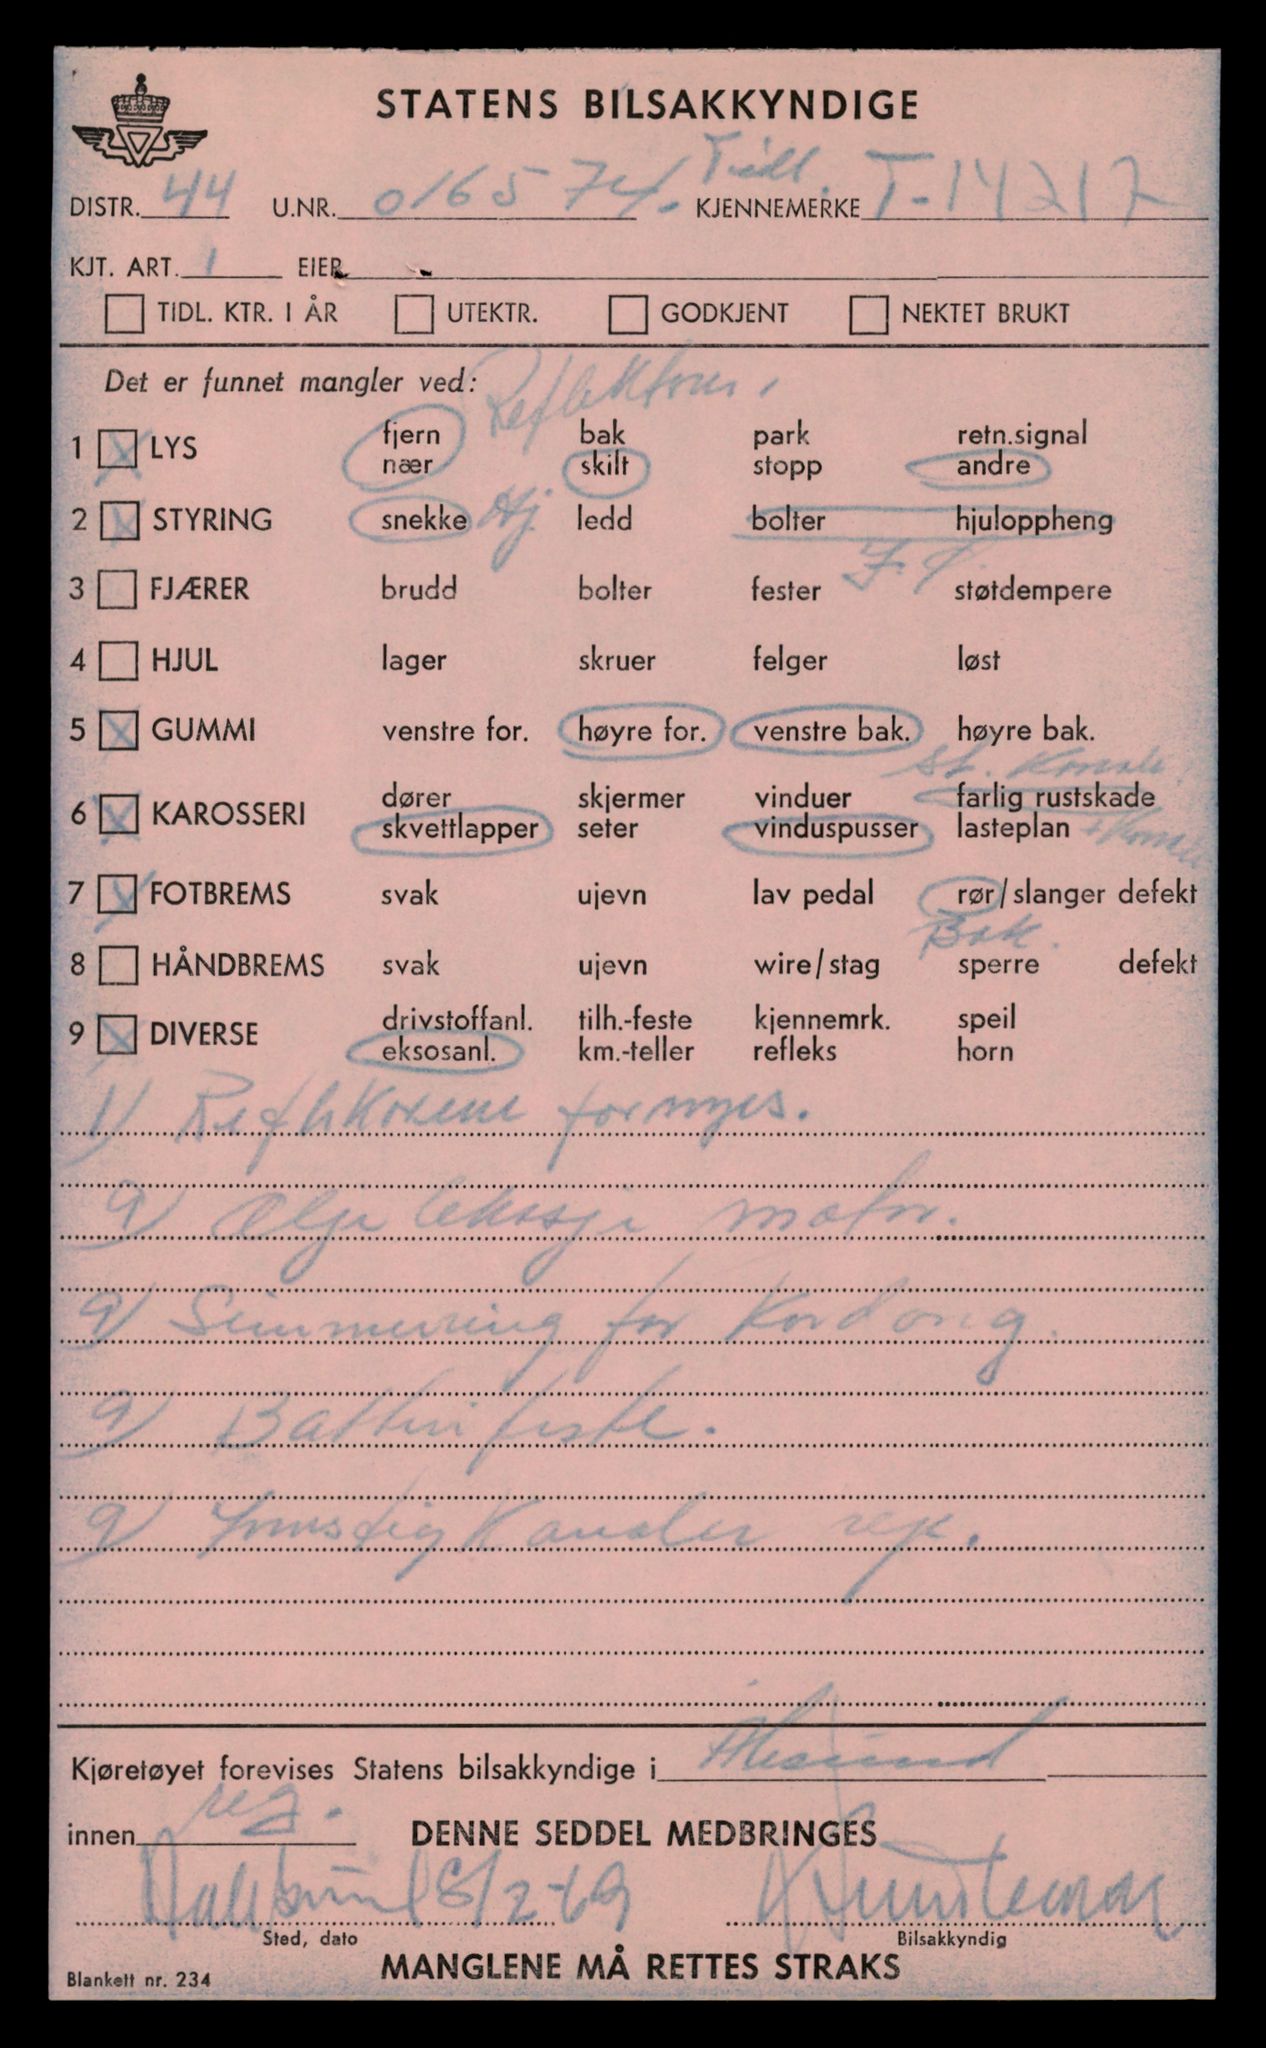 STATENS BILSAKKYNDIGE
Tidl.
DISTR. 44 U.NR. 016574. KJENNEMERKE T-14217
KJT. ART. 1 EIER
TIDL. KTR. I ÅR UTEKTR. GODKJENT NEKTET BRUKT
Det er funnet mangler ved: Reflektorer.
fjern bak park retn.signal
1 X LYS
nær skilt stopp andre
2 X STYRING snekke Hj. ledd bolter hjuloppheng
3 FJÆRER brudd bolter fester støtdempere
4 HJUL lager skruer felger løst
5 X GUMMI venstre for. høyre for. venstre bak. høyre bak.
dører skjermer vinduer farlig rustskade
6 X KAROSSERI
skvettlapper seter vinduspusser lasteplan
7 X FOTBREMS svak ujevn lav pedal rør/slanger defekt
Bak.
8 HÅNDBREMS svak ujevn wire/stag sperre defekt
drivstoffanl. tilh.-feste kjennemrk. speil
9 X DIVERSE
eksosanl. km.-teller refleks horn
1) Reflektorene fornyes.
9) Olje lekasje motor.
9) Simmerring for Kardong.
9) Batteri feste.
9) Innstig Kanaler rep.
Kjøretøyet forevises Statens bilsakkyndige i Ålesund
innen reg. DENNE SEDDEL MEDBRINGES
8/2-69
Sted, dato Bilsakkyndig
Blankett nr. 234 MANGLENE MÅ RETTES STRAKS